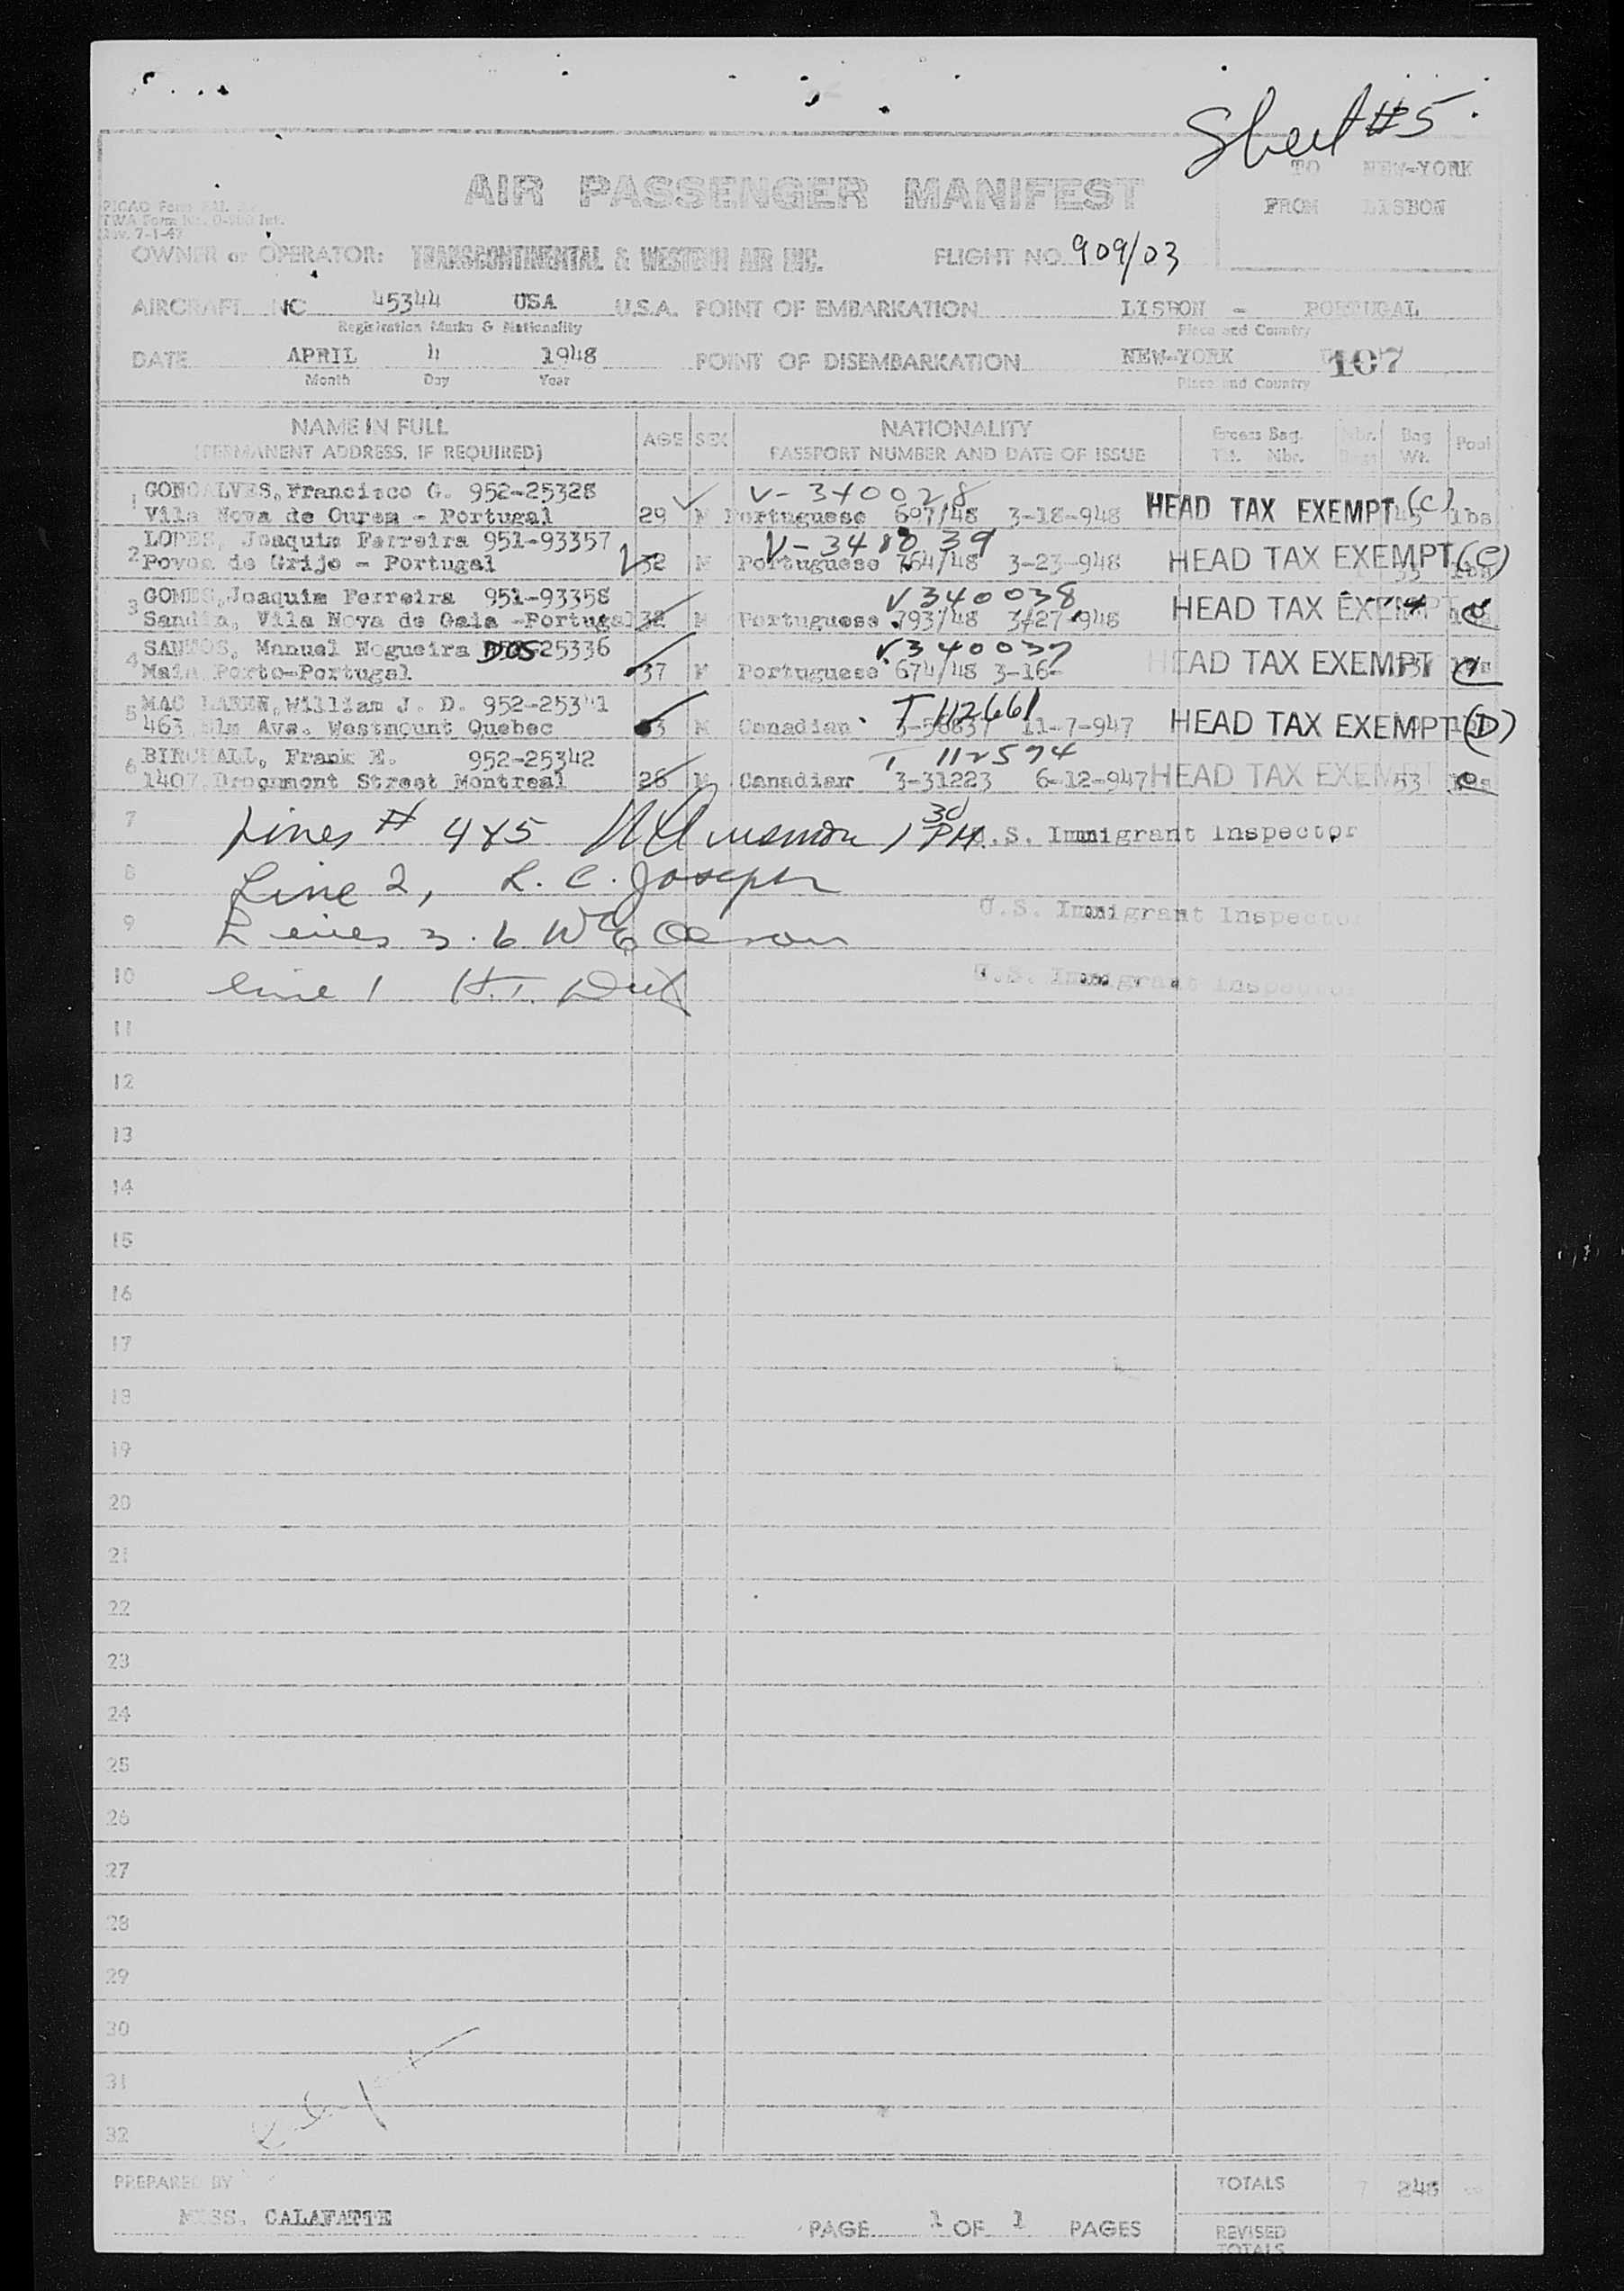 Sheet #5.
TO NEW-YORK
AIR PASSENGER MANIFEST
FROM LISBON
Rev. 7-1-47
OWNER or OPERATOR: TRANSCONTINENTAL & WESTERN AIR INC. FLIGHT NO. 909/03
AIRCRAFT NC 45344 USA U.S.A. POINT OF EMBARKATION LISBON - PORTUGAL
Registration Marks & Nationality Place and Country
DATE APRIL 4 1948 POINT OF DISEMBARKATION NEW-YORK 107
Month Day Year Place and Country
NAME IN FULL AGE SEX NATIONALITY Excess Bag. Nbr. Bag Pool
(PERMANENT ADDRESS, IF REQUIRED) PASSPORT NUMBER AND DATE OF ISSUE Tkt. Nbr. Bags Wt.
1 GONCALVES, Francisco G. 952-25328 V-340028 HEAD TAX EXEMPT (C)
Vila Nova de Ourem - Portugal 29 M Portuguese 697/48 3-18-948 lbs
2 LOPES, Joaquim Ferreira 951-93357 HEAD TAX EXEMPT (C)
Povoa de Grijo - Portugal 32 M Portuguese 764/48 3-23-948
3 GOMES, Joaquim Ferreira 951-93358 V340038 HEAD TAX EXEMPT
Vila Nova de Gaia -Portugal 38 M Portuguese 793/48 3/27-948
4 SANTOS, Manuel Nogueira DOS 25336 V340037 HEAD TAX EXEMPT
Maia Porto-Portugal 37 M Portuguese 674/48 3-16-
5 MAC LAREN, William J. D. 952-25341 T 112661 HEAD TAX EXEMPT (D)
463 Elm Ave. Westmount Quebec M Canadian 11-7-947
6 BIRCHALL, Frank E. 952-25342 T 112574 HEAD TAX EXEMPT
1407 Street Montreal 26 M Canadian 3-31223 6-12-947 53 lbs
7 Lines # 4 & 5 130 PM U.S. Immigrant Inspector
8 Line 2, L. C. Joseph
9 Lines 3. 6 U.S. Immigrant Inspector
10 line 1 H.T. U.S. Immigrant Inspector
11
12
13
14
15
16
17
18
19
20
21
22
23
24
25
26
27
28
29
30
31
32
PREPARED BY TOTALS 7 248
MISS. CALAFATTE PAGE 1 OF 1 PAGES REVISED
TOTALS